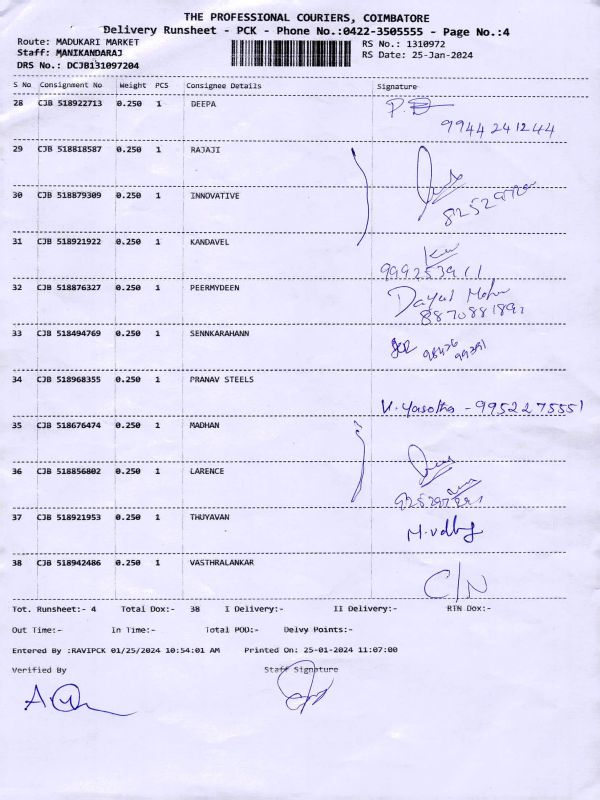 THE PROFESSIONAL COURIERS, COIMBATORE
Delivery Runsheet - PCK - Phone No.:0422-3505555 - Page No.:4
Route: MADUKARI MARKET RS No.: 1310972
Staff: MANIKANDARAJ RS Date: 25-Jan-2024
DRS No.: DCJB131097204
S No Consignment No Weight PCS Consignee Details Signature
28 CJB 518922713 0.250 1 DEEPA
9944241244
29 CJB 518818587 0.250 1 RAJAJI
30 CJB 518879309 0.250 1 INNOVATIVE
31 CJB 518921922 0.250 1 KANDAVEL
999253911
32 CJB 518876327 0.250 1 PEERMYDEEN
33 CJB 518494769 0.250 1 SENNKARAHANN
34 CJB 518968355 0.250 1 PRANAV STEELS
V. Yasotha - 9952275551
35 CJB 518676474 0.250 1 MADHAN
36 CJB 518856802 0.250 1 LARENCE
37 CJB 518921953 0.250 1 THUYAVAN
38 CJB 518942486 0.250 1 VASTHRALANKAR
C/N
Tot. Runsheet:- 4 Total Dox:- 38 I Delivery:- II Delivery:- RTN Dox:-
Out Time:- In Time:- Total POD:- Delvy Points:-
Entered By :RAVIPCK 01/25/2024 10:54:01 AM Printed On: 25-01-2024 11:07:00
Verified By Staff Signature